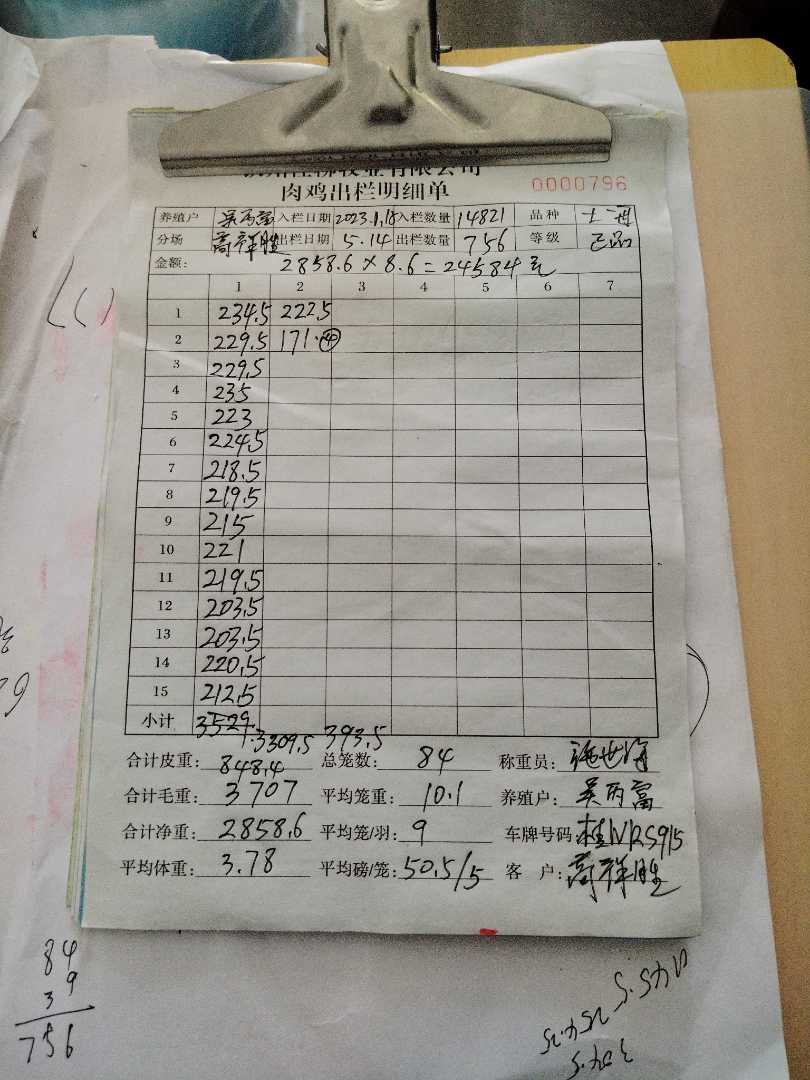 牧业有限公司
肉鸡出栏明细单 0000796
养殖户 吴丙富 入栏日期 2023.1,18 入栏数量 14821 品种 土
分场 高祥胜 出栏日期 5.14 出栏数量 756 等级 己品
金额: 2858.6 × 8.6 = 24584元
1 2 3 4 5 6 7
1 234.5 222.5
2 229.5 171.④
3 229.5
4 235
5 223
6 224.5
7 218.5
8 219.5
9 215
10 221
11 219.5
12 203.5
13 203.5
14 220.5
15 212.5
小计 3529.
3309.5 393.5
合计皮重: 848.4 总笼数: 84 称重员:
合计毛重: 3707 平均笼重: 10.1 养殖户: 吴丙富
合计净重: 2858.6 平均笼/羽: 9 车牌号码: 桂NRS915
平均体重: 3.78 平均磅/笼: 50.5/5 客 户: 高祥胜
84
39
756